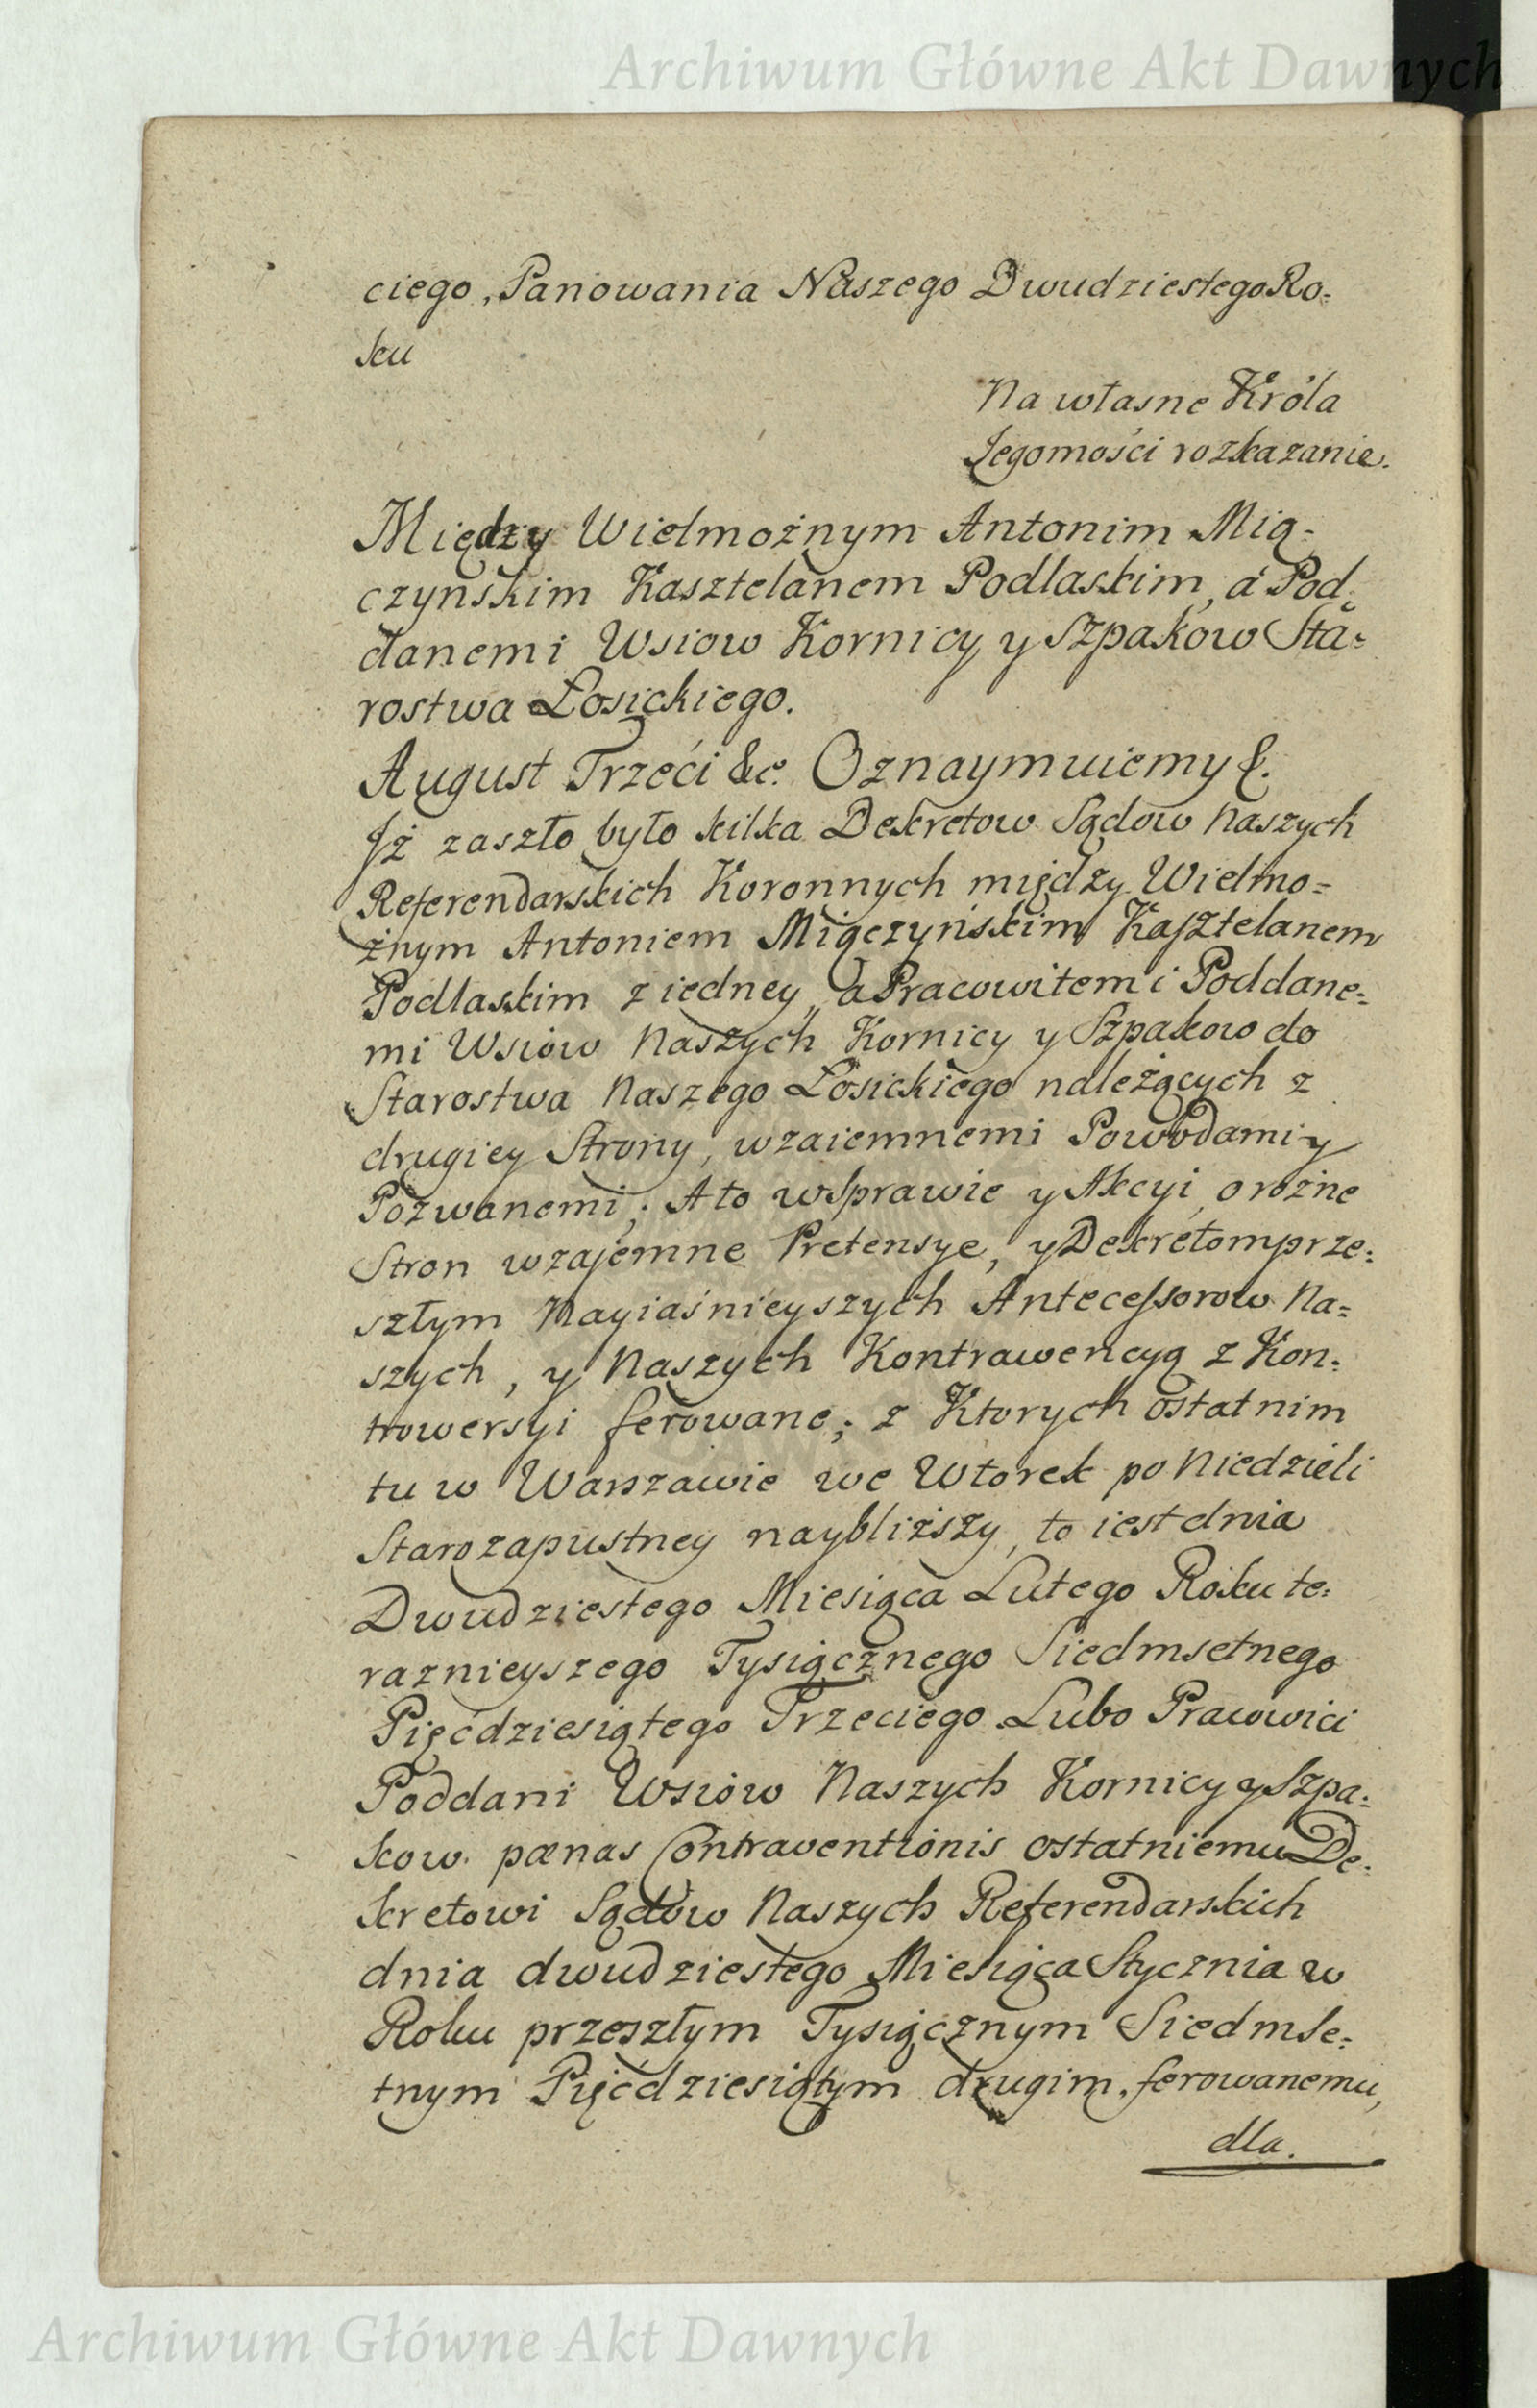 Archiwum Główne Akt Dawnych
ciego, Panowania Naszego Dwudziestego Ro=
ku
Na własne Króla
Jegomości rozkazanie.
Między Wielmożnym Antonim Mią=
czyńskim Kasztelanem Podlaskim, a Pod=
danemi Wsiow Kornicy y Szpakow Sta=
rostwa Łosickiego.
August Trzeci &c. Oznaymuiemy &.
Jż zaszło było kilka Dekretow Sądow Naszych
Referendarskich Koronnych między Wielmo=
żnym Antoniem Miączyńskim Kasztelanem
Podlaskim z iedney, a Pracowitemi Poddane=
mi Wsiow Naszych Kornicy y Szpakow do
Starostwa Naszego Łosickiego należących z
drugiey Strony, wzaiemnemi Powodami y
Pozwanemi; A to w Sprawie y Akcyi, o rożne
Stron wzajemne Pretensye, y Dekretom prze=
szłym Nayiaśnieyszych Antecessorow Na=
szych, y Naszych Kontrawencyą z Kon=
trowersyi ferowane; z Ktorych ostatnim
tu w Warszawie we Wtorek po Niedzieli
Starozapustney naybliższy, to iest dnia
Dwudziestego Miesiąca Lutego Roku te=
raznieyszego Tysiącznego Siedmsetnego
Pięćdziesiątego Trzeciego Lubo Pracowici
Poddani Wsiow Naszych Kornicy y Szpa=
kow pænas Contraventionis ostatniemu De=
kretowi Sądow Naszych Referendarskich
dnia dwudziestego Miesiąca Stycznia w
Roku przeszłym Tysiącznym Siedmse=
tnym Pięćdziesiątym drugim, ferowanemu,
dla.
Archiwum Główne Akt Dawnych